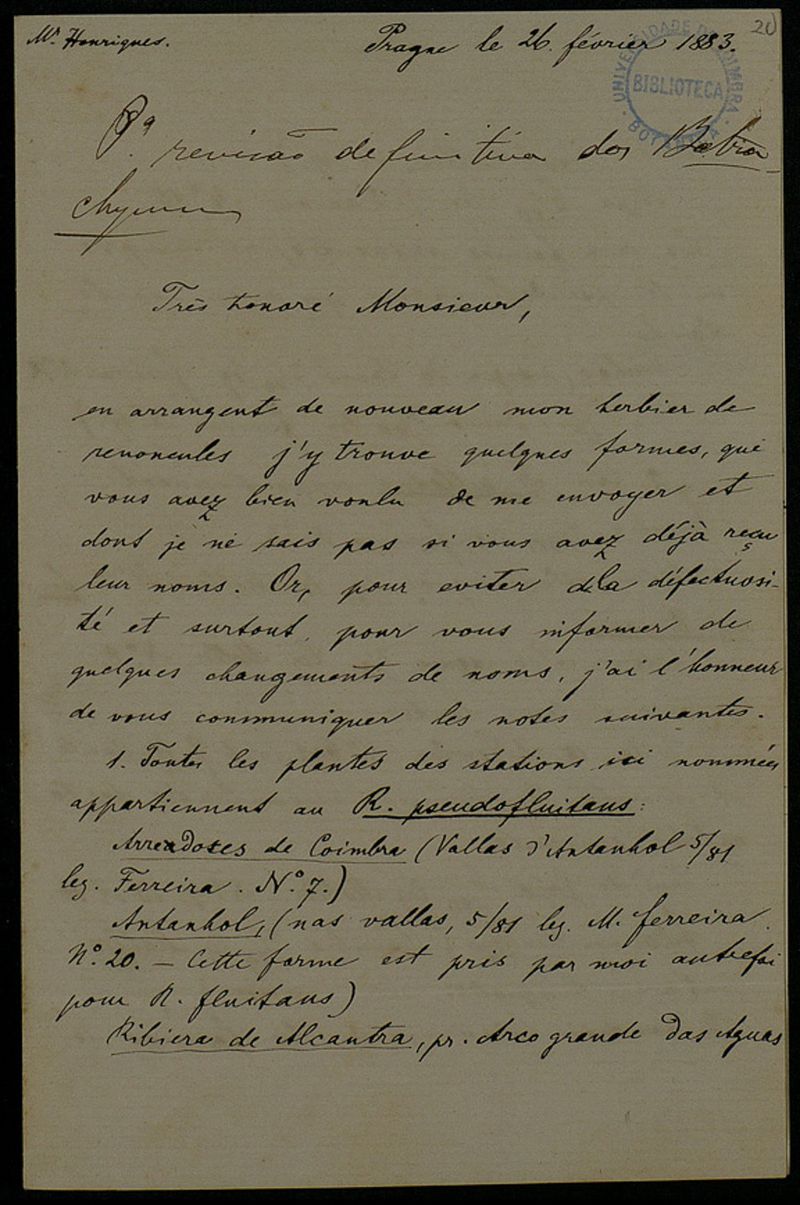 Mr Henriques.
Prague le 26. février 1883.
20
UNIVERSIDADE DE COIMBRA
BIBLIOTECA
Pa revisão definitiva dos Batra-
chyum
Très honoré Monsieur,
en arrangent de nouveau mon herbier de
renoncules j'y trouve quelques formes, que
vous avez bien voulu de me envoyer et
dont je ne sais pas si vous avez déjà reçu
leur noms. Or, pour eviter la défectuosi-
té et surtout, pour vous informer de
quelques changements de noms, j'ai l'honneur
de vous communiquer les notes suivantes.
1. Toutes les plantes des stations ici nommées
appartiennent au R. pseudofluitans:
Arreadores de Coimbra (Vallas d'Antanhol 5/81
leg. Ferreira. No. 7.)
Antanhol, (nas vallas, 5/81 leg. M. ferreira.
No. 20. – Cette forme est pris par moi autrefoi
pour R. fluitans)
Ribiera de Alcantra, pr. Arco grande das Aguas